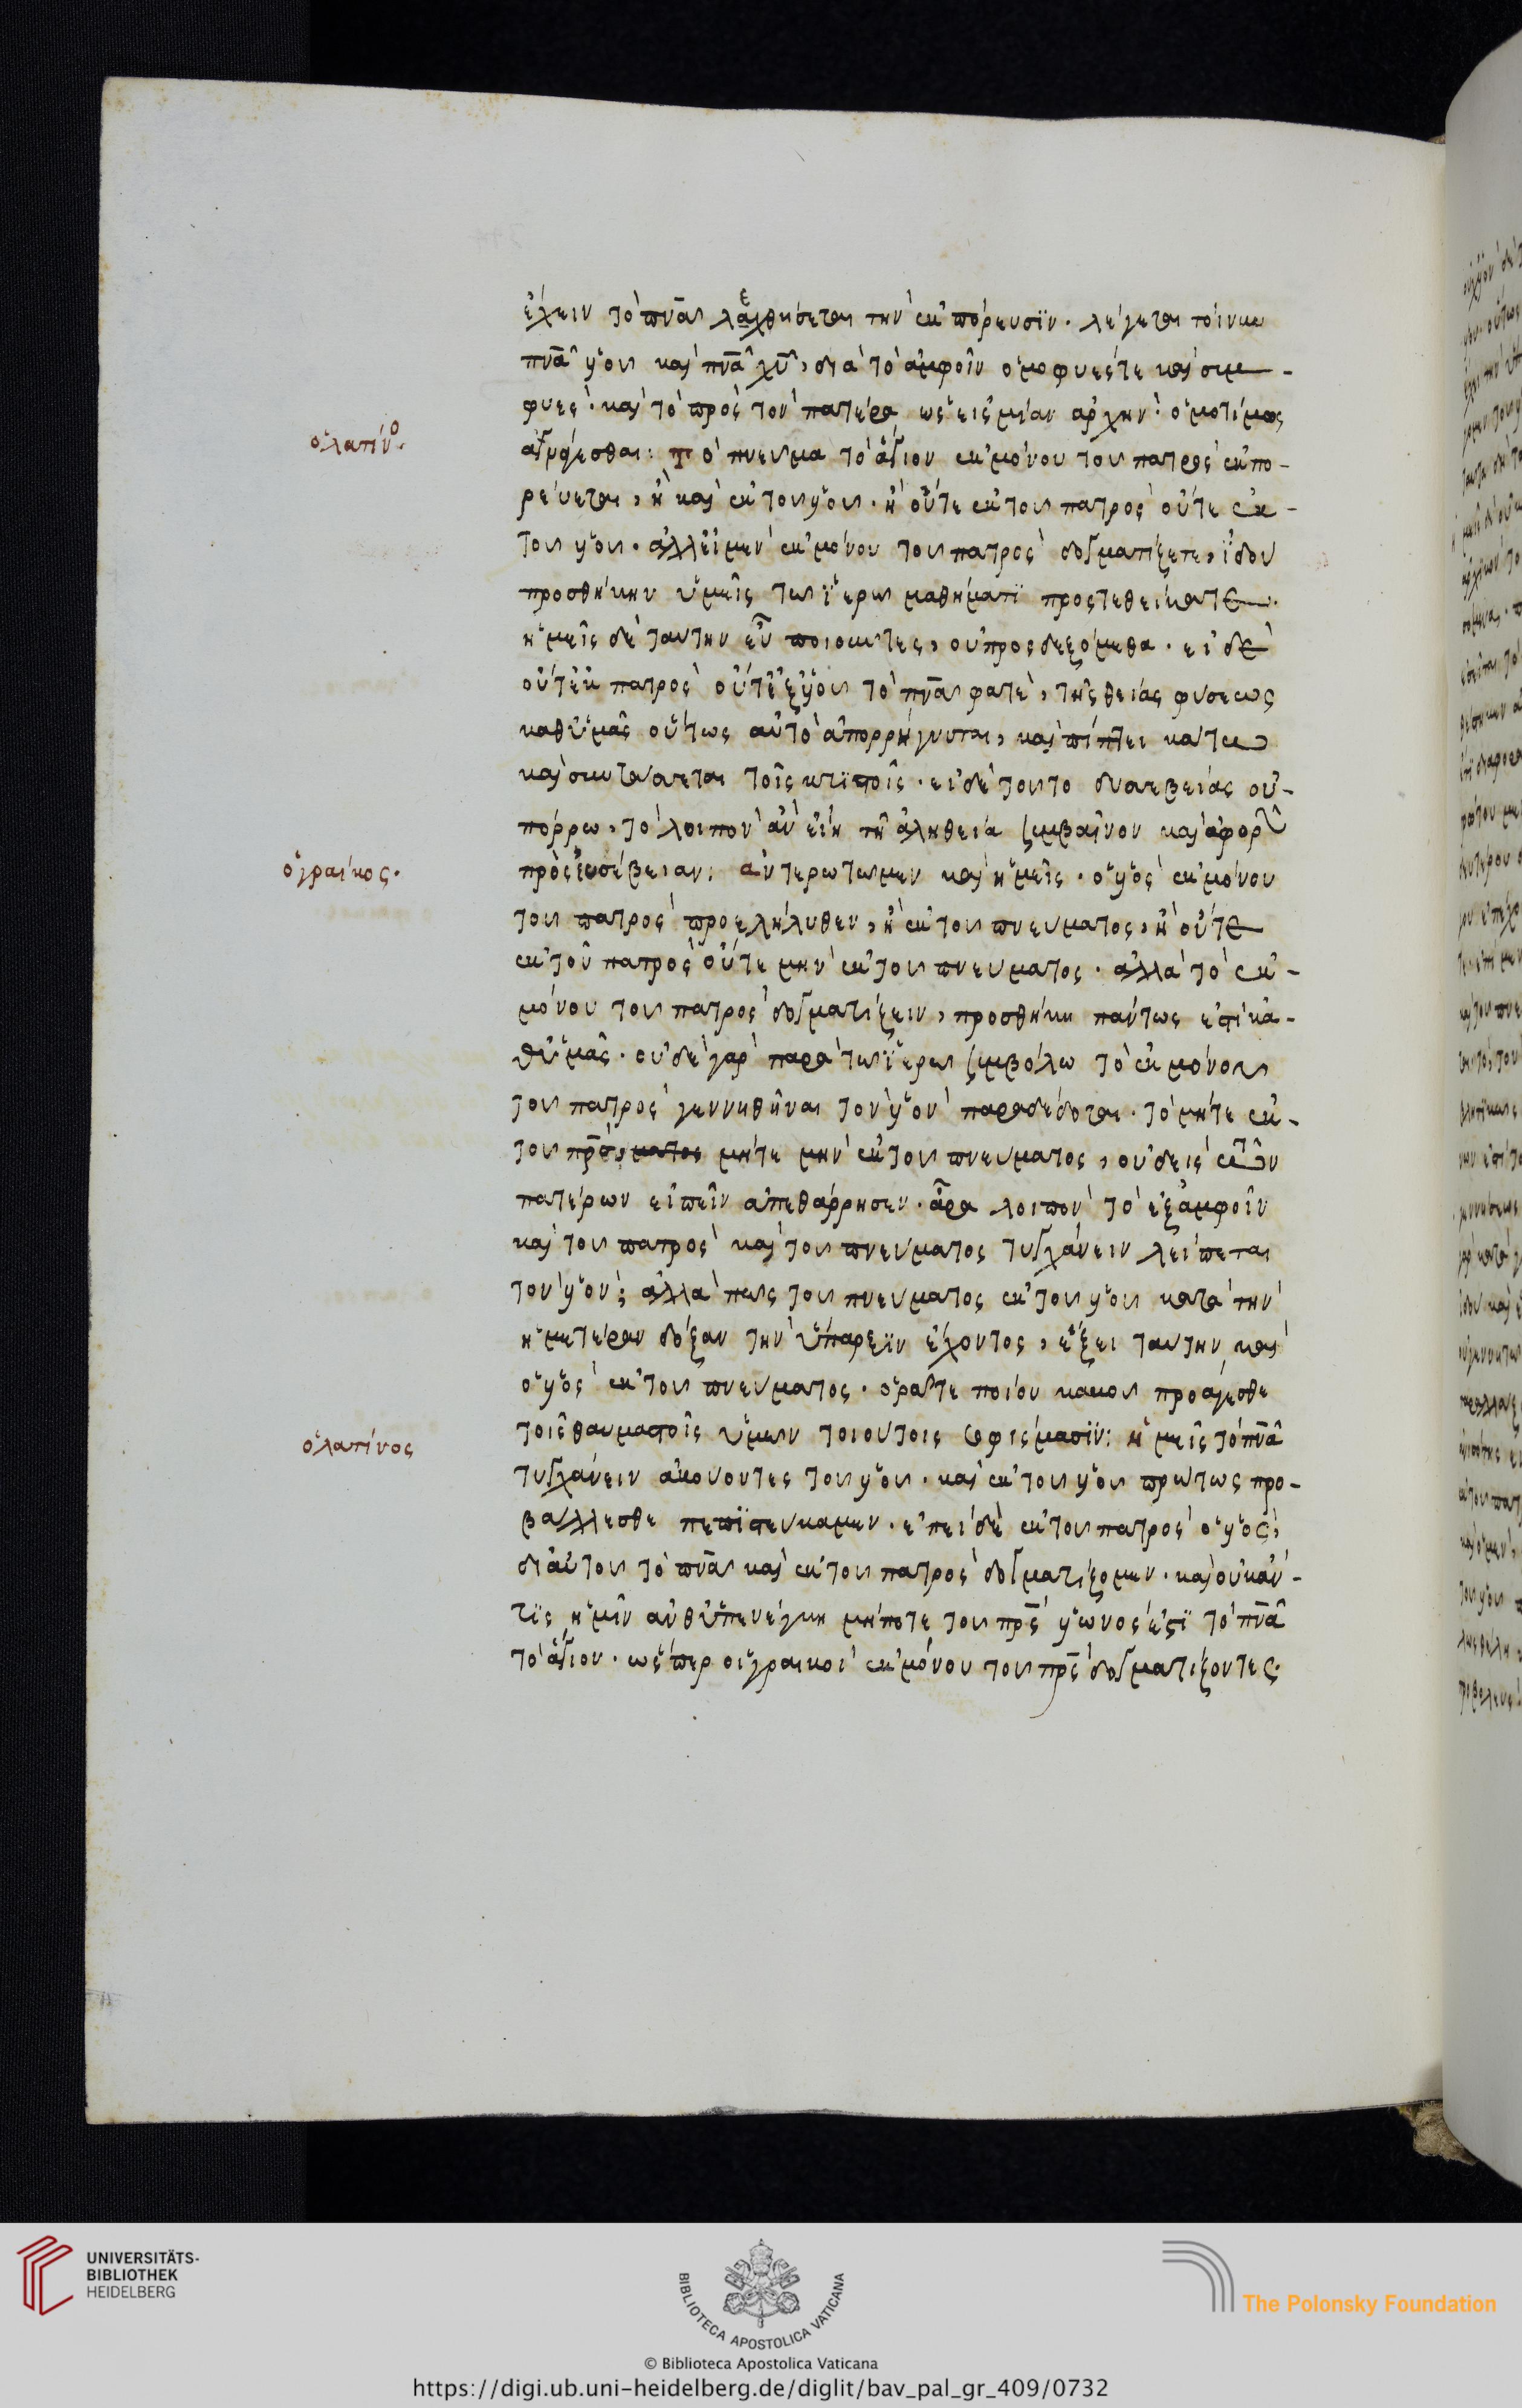 ἔχειν τὸ πνᾶ λεχθήσεται τὴν ἐκπόρευσϊν. λέγεται τοίνυν
πνᾶ ὑοῦ καὶ πνᾶ χῦ, διὰ τὸ ἀμφοῖν ὁμοφυές τε καὶ συμ-
φυές. καὶ τὸ πρὸς τὸν πατέρα ὡς εἰς μίαν ἀρχὴν ὁμοτίμως
ὁ λατίνο.
ἀνάγεσθαι: Τὸ πνεῦμα τὸ ἅγιον ἐκ μόνου τοῦ πατρὸς ἐκπο-
ρεύεται, ἢ καὶ ἐκ τοῦ ὑοῦ. ἢ οὔτε ἐκ τοῦ πατρὸς οὔτε ἐκ-
τοῦ ὑοῦ. ἀλλ' εἰ μὲν ἐκ μόνου τοῦ πατρὸς δογματίζετε, ἰδοὺ
προσθήκην ὑμεῖς τῶ ϊερῶ μαθήματϊ προστεθείκατε.
ἡμεῖς δὲ ταύτην εὖ ποιοῦντες, οὐ προσδεξόμεθα. εἰ δὲ
οὔτ' ἐκ πατρὸς οὔτ' ἐξ ὑοῦ τὸ πνᾶ φατὲ, τῆς θείας φύσεως
καθ' ὑμᾶς οὕτως αὐτὸ ἀπορρήγνυται, καὶ πίπτει κάτω,
καὶ συντάττεται τοῖς κτϊστοῖς. εἰ δὲ τοῦτο δυσσεβείας οὐ-
πόρρω, τὸ λοιπὸν ἂν εἴη τῆ ἀληθεία συμβαῖνον καὶ ἀφορῶν
ὁ γραίκος.
πρὸς εὐσέβειαν: ἀντερωτῶμεν καὶ ἡμεῖς. ὁ ὑὸς ἐκ μόνου
τοῦ πατρὸς προελήλυθεν, ἢ ἐκ τοῦ πνεύματος, ἢ οὔτε
ἐκ τοῦ πατρὸς οὔτε μὴν ἐκ τοῦ πνεύματος. ἀλλὰ τὸ ἐκ-
μόνου τοῦ πατρὸς δογματίζειν, προσθήκη πάντως ἐστὶ κα-
θ' ὑμᾶς. οὐδὲ γὰρ παρὰ τῶ ϊερῶ συμβόλω τὸ ἐκ μόνου
τοῦ πατρὸς γεννηθῆναι τὸν ὑὸν παραδέδοται. τὸ μήτε ἐκ-
τοῦ πρς μήτε μὴν ἐκ τοῦ πνεύματος, οὐδεὶς ἐκ τῶν
πατέρων εἰπεῖν ἀπεθάρρησεν. ἆρα λοιπὸν τὸ ἐξ ἀμφοῖν
καὶ τοῦ πατρὸς καὶ τοῦ πνεύματος τυγχάνειν λείπεται
τὸν ὑὸν; ἀλλὰ πῶς τοῦ πνεύματος ἐκ τοῦ ὑοῦ κατὰ τὴν
ἡμετέραν δόξαν τὴν ὕπαρξϊν ἔχοντος, ἕξει ταύτην καὶ
ὁ ὑὸς ἐκ τοῦ πνεύματος. ὁρᾶτε ποῖον κακὸν προάγεσθε
ὁ λατίνος
τοῖς θαυμαστοῖς ὑμῶν τοιούτοις σοφίσμασϊν: ἡμεῖς τὸ πνᾶ
τυγχάνειν ἀκούοντες τοῦ ὑοῦ. καὶ ἐκ τοῦ ὑοῦ πρώτως προ-
βάλλεσθε πεπϊστεύκαμεν. ἐπεὶ δὲ ἐκ τοῦ πατρὸς ὁ ὑὸς,
δι' αὐτοῦ τὸ πνᾶ καὶ ἐκ τοῦ πατρὸς δογματίζομεν. καὶ οὐκ ἄν-
τϊς ἡμῖν ἀνθυπενέγκη μήποτε τοῦ πρς ὑωνός ἐστϊ τὸ πνᾶ
τὸ ἅγιον. ὥσπερ οἱ γραικοὶ ἐκ μόνου τοῦ πρς δογματίζοντες.
UNIVERSITÄTS-
BIBLIOTHEK
HEIDELBERG
BIBLIOTECA APOSTOLICA VATICANA
The Polonsky Foundation
© Biblioteca Apostolica Vaticana
https://digi.ub.uni-heidelberg.de/diglit/bav_pal_gr_409/0732